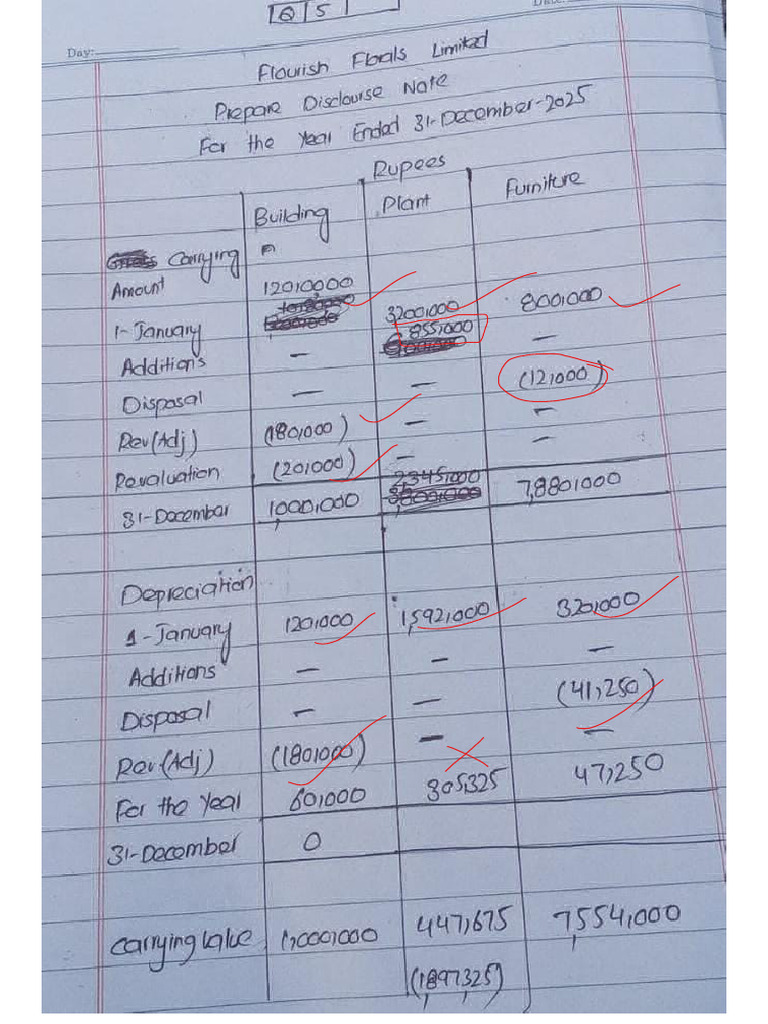 Q 5
Day:
Flourish Florals Limited
Prepare Disclourse Note
For the Year Ended 31-December-2025
Rupees
Building Plant Furniture
Carrying Amount
1-January 1201000 3200,000 800,000
Additions — 855,000 —
Disposal — — (12,000)
Rev(Adj) (180,000) — —
Revaluation (20,000) — —
31-December 1,000,000 2,345,000 7,880,000
Depreciation
1-January 120,000 1,592,000 320,000
Additions — — —
Disposal — — (41,250)
Rev(Adj) (180,000) — —
For the Year 60,000 305,325 47,250
31-December 0
Carrying Value 1,000,000 447,675 7,554,000
(1,897,325)